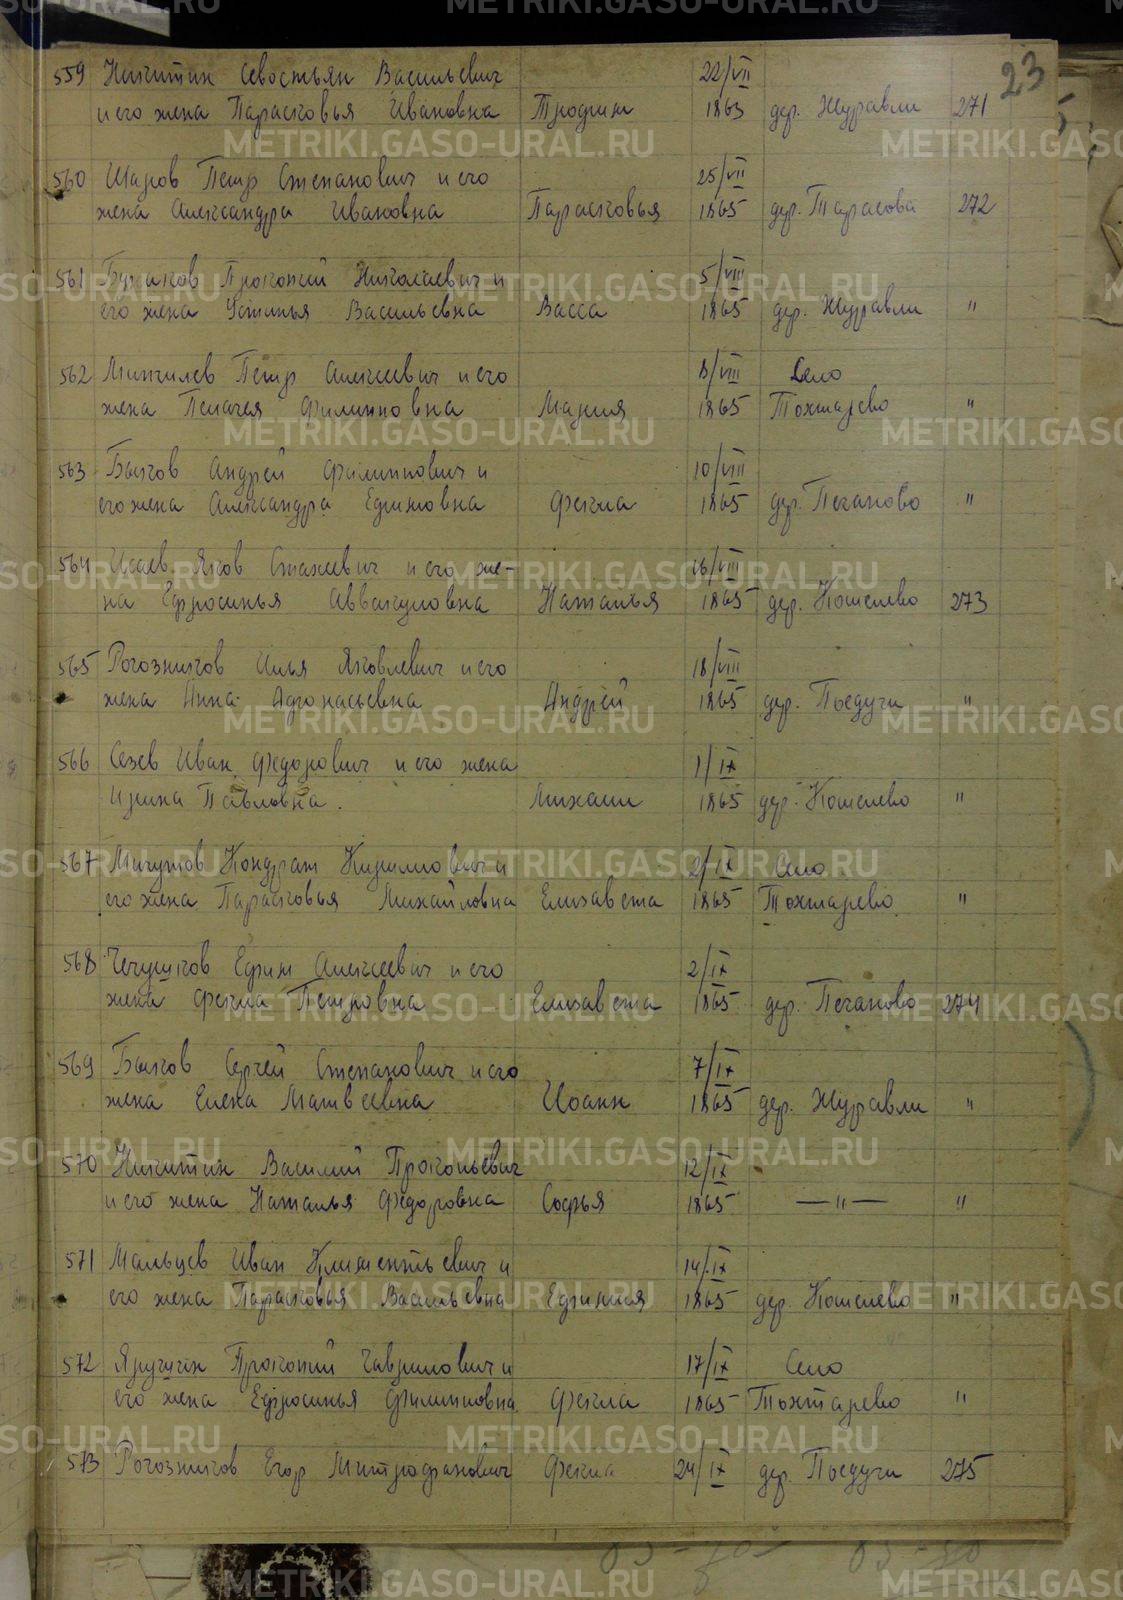 23
559 Никитин Севостьян Васильевич 22/VII
и его жена Парасковья Ивановна Трофим 1865 дер. Журавли 271
560 Шаров Петр Степанович и его 25/VII
жена Александра Ивановна Парасковья 1865 дер. Тарасова 272
561 Прокопий Николаевич и 5/VIII
его жена Устинья Васильевна Васса 1865 дер. Журавли "
562 Петр Алексеевич и его 8/VIII Село
жена Пелагея Филипповна Мария 1865 Тохтарево "
563 Быков Андрей Филиппович и 10/VIII
его жена Александра Ефимовна Фекла 1865 дер. Пеганово "
564 Исаев Яков Стахеевич и его же- 16/VIII
на Ефросинья Аввакумовна Наталья 1865 дер. Кошелево 273
565 Рогозников Илья Яковлевич и его 18/VIII
жена Анна Афонасьевна Андрей 1865 дер. Поедуги "
566 Сезев Иван Федорович и его жена 1/IX
Ирина Павловна. Михаил 1865 дер. Кошелево "
567 Мичутов Кондрат Кириллович и 2/IX Село
его жена Парасковья Михайловна Елизавета 1865 Тохтарево "
568 Ефим Алексеевич и его 2/IX
жена Фекла Петровна Елизавета 1865 дер. Пеганово 274
569 Быков Сергей Степанович и его 7/IX
жена Елена Матвеевна Иоанн 1865 дер. Журавли "
570 Никитин Василий Прокопьевич 12/IX
и его жена Наталья Федоровна Софья 1865 — " — "
571 Мальцев Иван Климентьевич и 14/IX
его жена Парасковья Васильевна Ефимия 1865 дер. Кошелево "
572 Яручкин Прокопий Гаврилович и 17/IX Село
его жена Ефросинья Филипповна Фекла 1865 Тохтарево "
573 Рогозников Егор Митрофанович Фекла 24/IX дер. Поедуги 275
METRIKI.GASO-URAL.RU